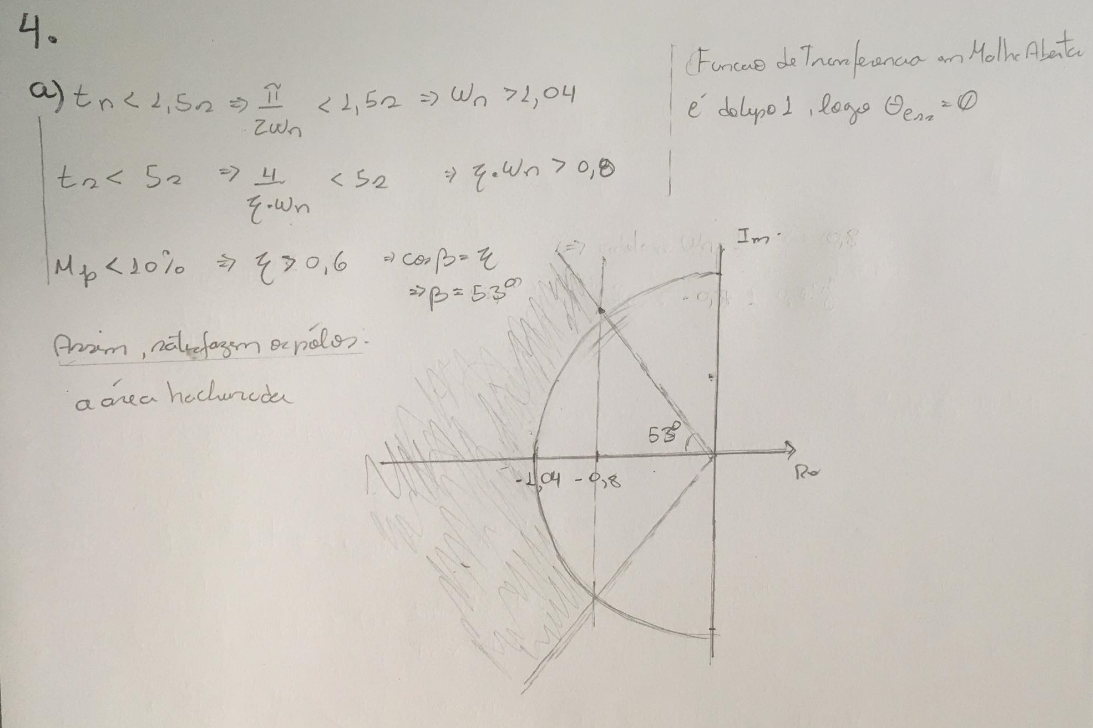 4.
a) tr < 1,5s ⇒ π/2ωn < 1,5s ⇒ ωn > 1,04
ts < 5s ⇒ 4/ξ·ωn < 5s ⇒ ξ·ωn > 0,8
Mp < 10% ⇒ ξ ≥ 0,6 ⇒ cosβ = ξ
⇒ β = 53°
Assim, satisfazem os pólos
a área hachurada
Funcao de Transferencia em Malha Aberta
é do tipo 1, logo θerr = 0
Im
53°
-1,04 -0,8
Re